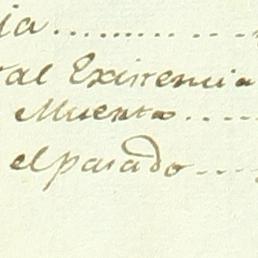 ja ...........
tal Existencia
Muerto .....
el pasado ....